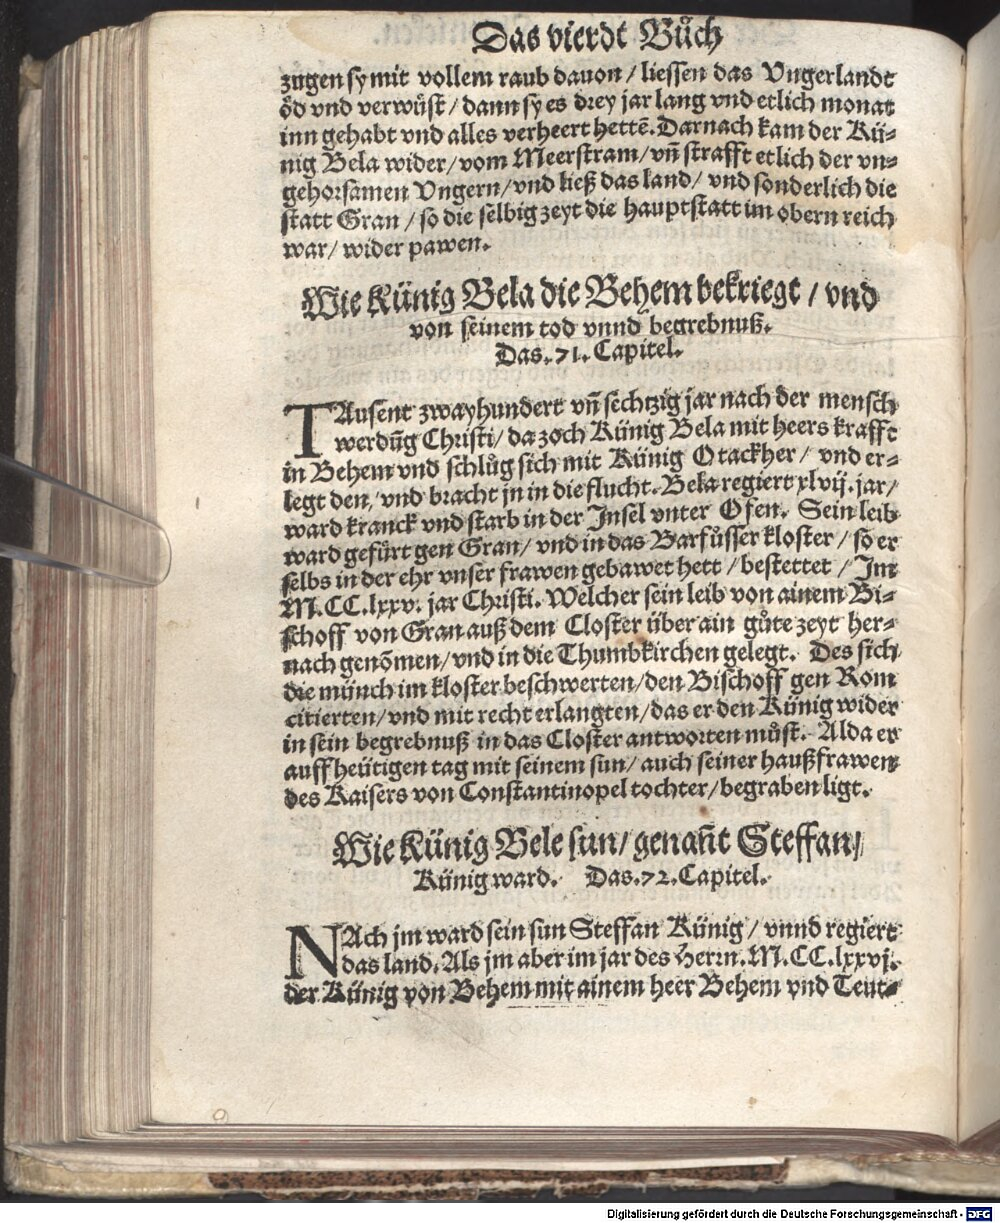 Das vierdt Bůch
zugen sy mit vollem raub dauon / liessen das Vngerlandt
öd vnd verwüst / dann sy es drey jar lang vnd etlich monat
inn gehabt vnd alles verheert hettē. Darnach kam der Kü-
nig Bela wider / vom Meerstram / vñ strafft etlich der vn-
gehorsamen Vngern / vnd ließ das land / vnd sonderlich die
statt Gran / so die selbig zeyt die hauptstatt im obern reich
war / wider pawen.
Wie Künig Bela die Behem bekriegt / vnd
von seinem tod vnnd begrebnuß.
Das. 71. Capitel.
TAusent zwayhundert vñ sechtzig jar nach der mensch
werdūg Christi / da zoch Künig Bela mit heers krafft
in Behem vnd schlůg sich mit Künig Otackher / vnd er-
legt den, vnd bracht jn in die flucht. Bela regiert xlvij. jar /
ward kranck vnd starb in der Insel vnter Ofen. Sein leib
ward gefürt gen Gran / vnd in das Barfůsser kloster / so er
selbs in der ehr vnser frawen gebawet hett / bestettet / Im
M.CC.lxxv. jar Christi. Welcher sein leib von ainem Bi-
schoff von Gran auß dem Closter über ain gůte zeyt her-
nach genōmen / vnd in die Thumbkirchen gelegt. Des sich
die münch im kloster beschwerten / den Bischoff gen Rom
citierten / vnd mit recht erlangten / das er den Künig wider
in sein begrebnuß in das Closter antworten můst. Alda er
auff heütigen tag mit seinem sun / auch seiner haußfrawen
des Kaisers von Constantinopel tochter / begraben ligt.
Wie Künig Bele sun / genañt Steffan /
Künig ward. Das. 72. Capitel.
NAch jm ward sein sun Steffan Künig / vnnd regiert
das land. Als jm aber im jar des Herrn. M.CC.lxxvj.
der Künig von Behem mit ainem heer Behem vnd Teut-
Digitalisierung gefördert durch die Deutsche Forschungsgemeinschaft - DFG